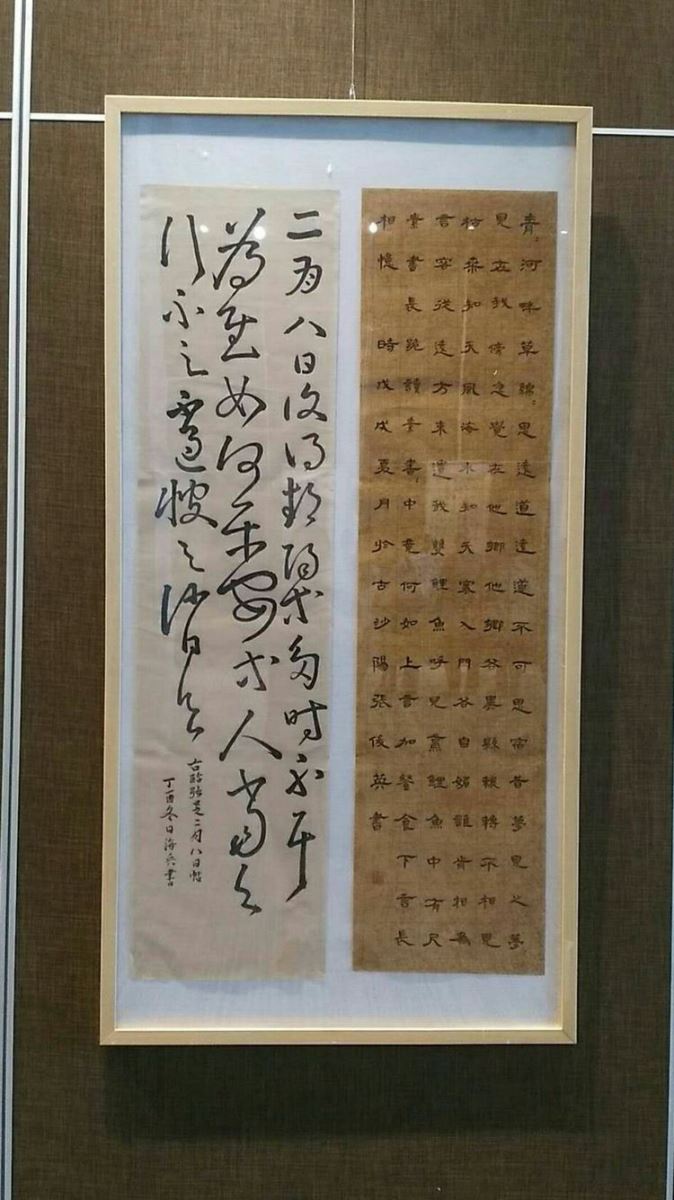 青〻河畔草綿〻思遠道遠道不可思宿昔夢見之夢
見在我傍忽覺在他鄉他鄉各異縣輾轉不相見
枯桑知天風海水知天寒入門各自媚誰肯相為
言客從遠方來遺我雙鯉魚呼兒烹鯉魚中有尺
素書長跪讀素書〻中竟何如上言加餐食下言長
相憶 時戊戌夏月於古沙陽張俊英書
二月八日復得鄱陽等多時不耳
為慰如何平安等人當與
行不
二月八日帖
丁酉冬日海兵書